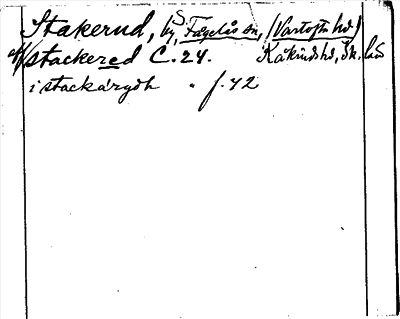 Stakerud, by, S. Fågelås sn, (Vartofta hd)
af/stackered C. 24. Kåkinds hd, Sk. län
i stackárydh " f. 42